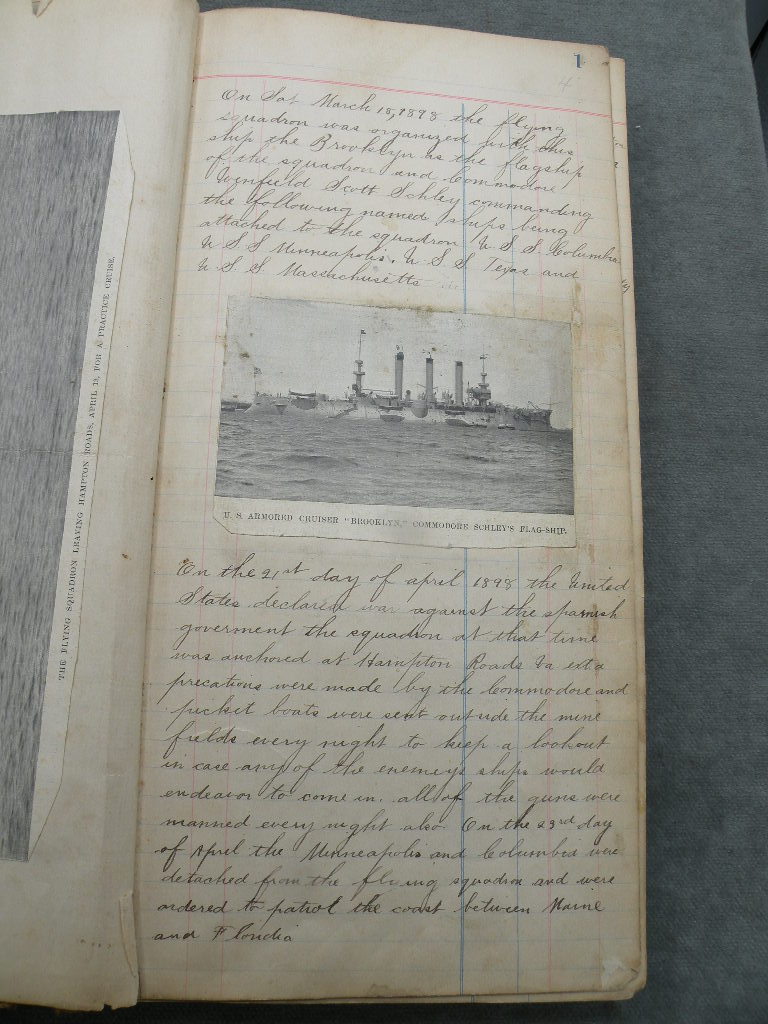 THE FLYING SQUADRON LEAVING HAMPTON ROADS, APRIL 13, FOR A PRACTICE CRUISE.
1
4
On Sat. March 18, 1898 the flying
squadron was organized with this
ship the Brooklyn as the flagship
of the squadron and Commodore
Winfield Scott Schley commanding
the following named ships being
attached to the squadron U.S.S Columbia
U S S Minneapolis. U S S Texas and
U. S. S Massachusetts
U. S. ARMORED CRUISER "BROOKLYN," COMMODORE SCHLEY'S FLAG-SHIP.
On the 21st day of april 1898 the United
States declared war against the spanish
goverment the squadron at that time
was anchored at Hampton Roads Va exta
precations were made by the Commodore and
picket boats were sent out side the mine
fields every night to keep a lookout
in case any of the enemeys ships would
endeavor to come in. all of the guns were
manned every night also. On the 23rd day
of April the Minneapolis and Columbia were
detached from the flying squadron and were
ordered to patrol the coast between Maine
and Flordia